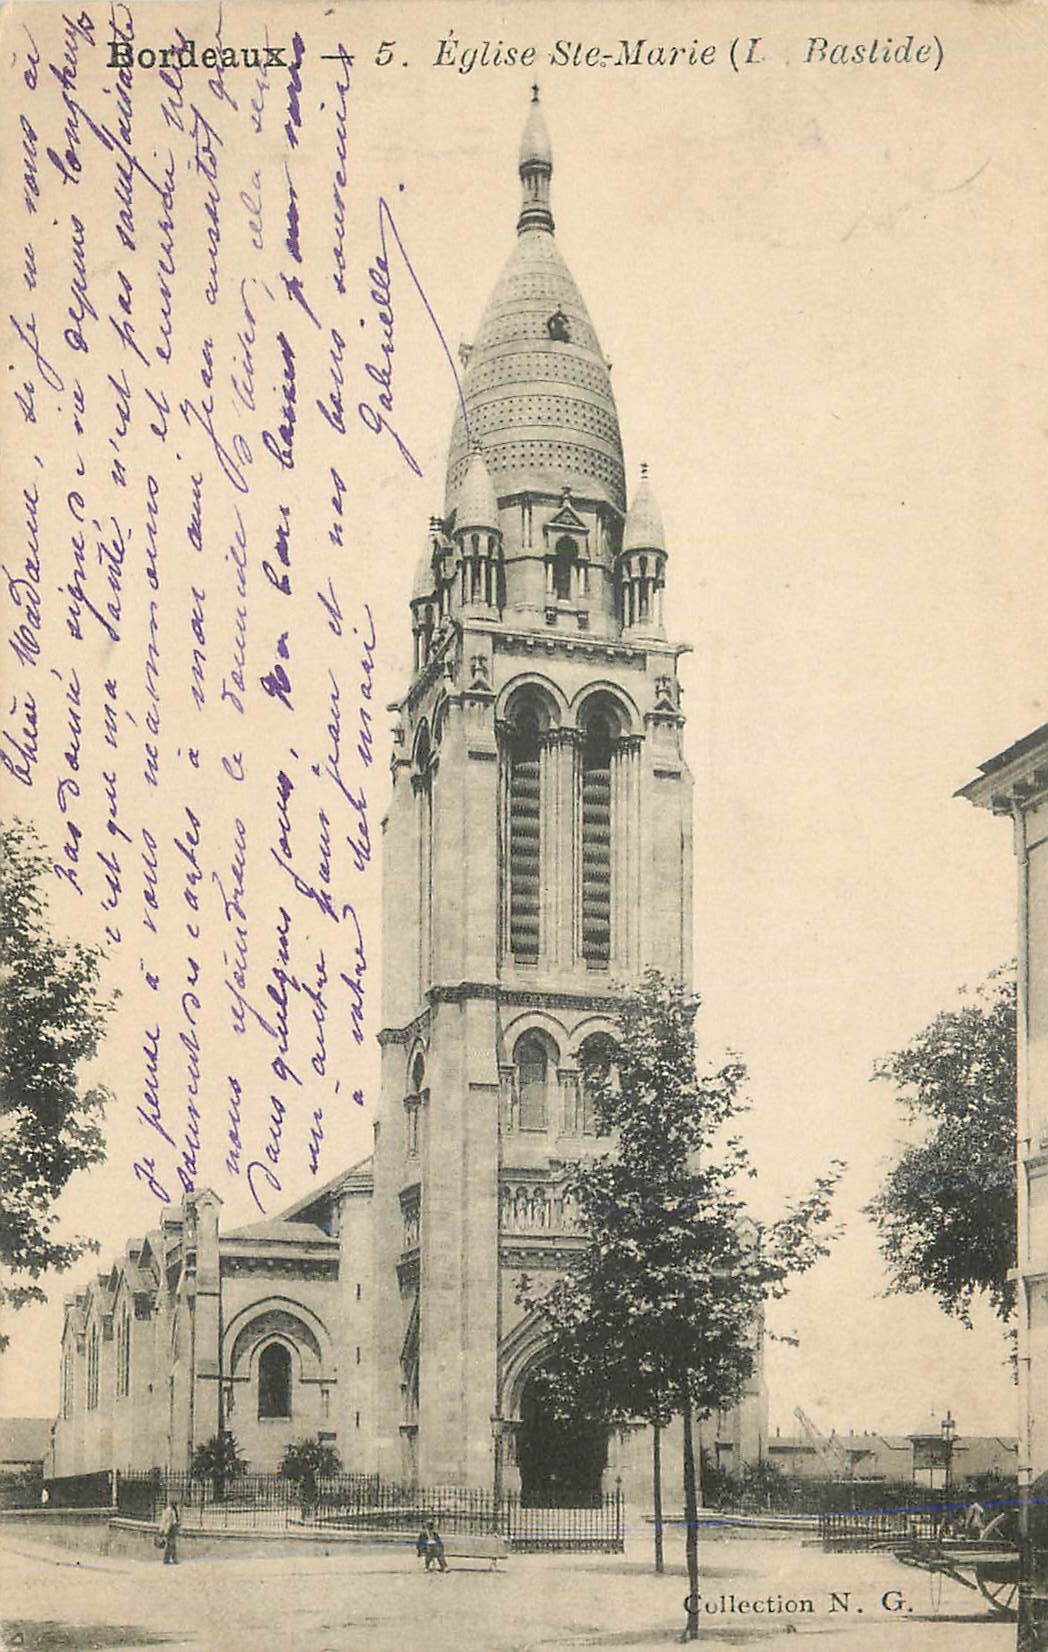 Bordeaux. — 5. Église Ste-Marie (L Bastide)
Chère Madame, si je ne vous ai
pas donné signe de vie depuis longtemps
c'est que ma santé n'est pas satisfaisante
Je pense à vous néanmoins et enverrai plus
souvent des cartes à mon ami Jean aussitôt que
nous rejoindrons le domicile d'hiver, cela sera
dans quelques jours, Un bon baiser pour vous
un autre pour Jean et nos bons souvenirs
à votre cher mari
Gabrielle
Collection N. G.